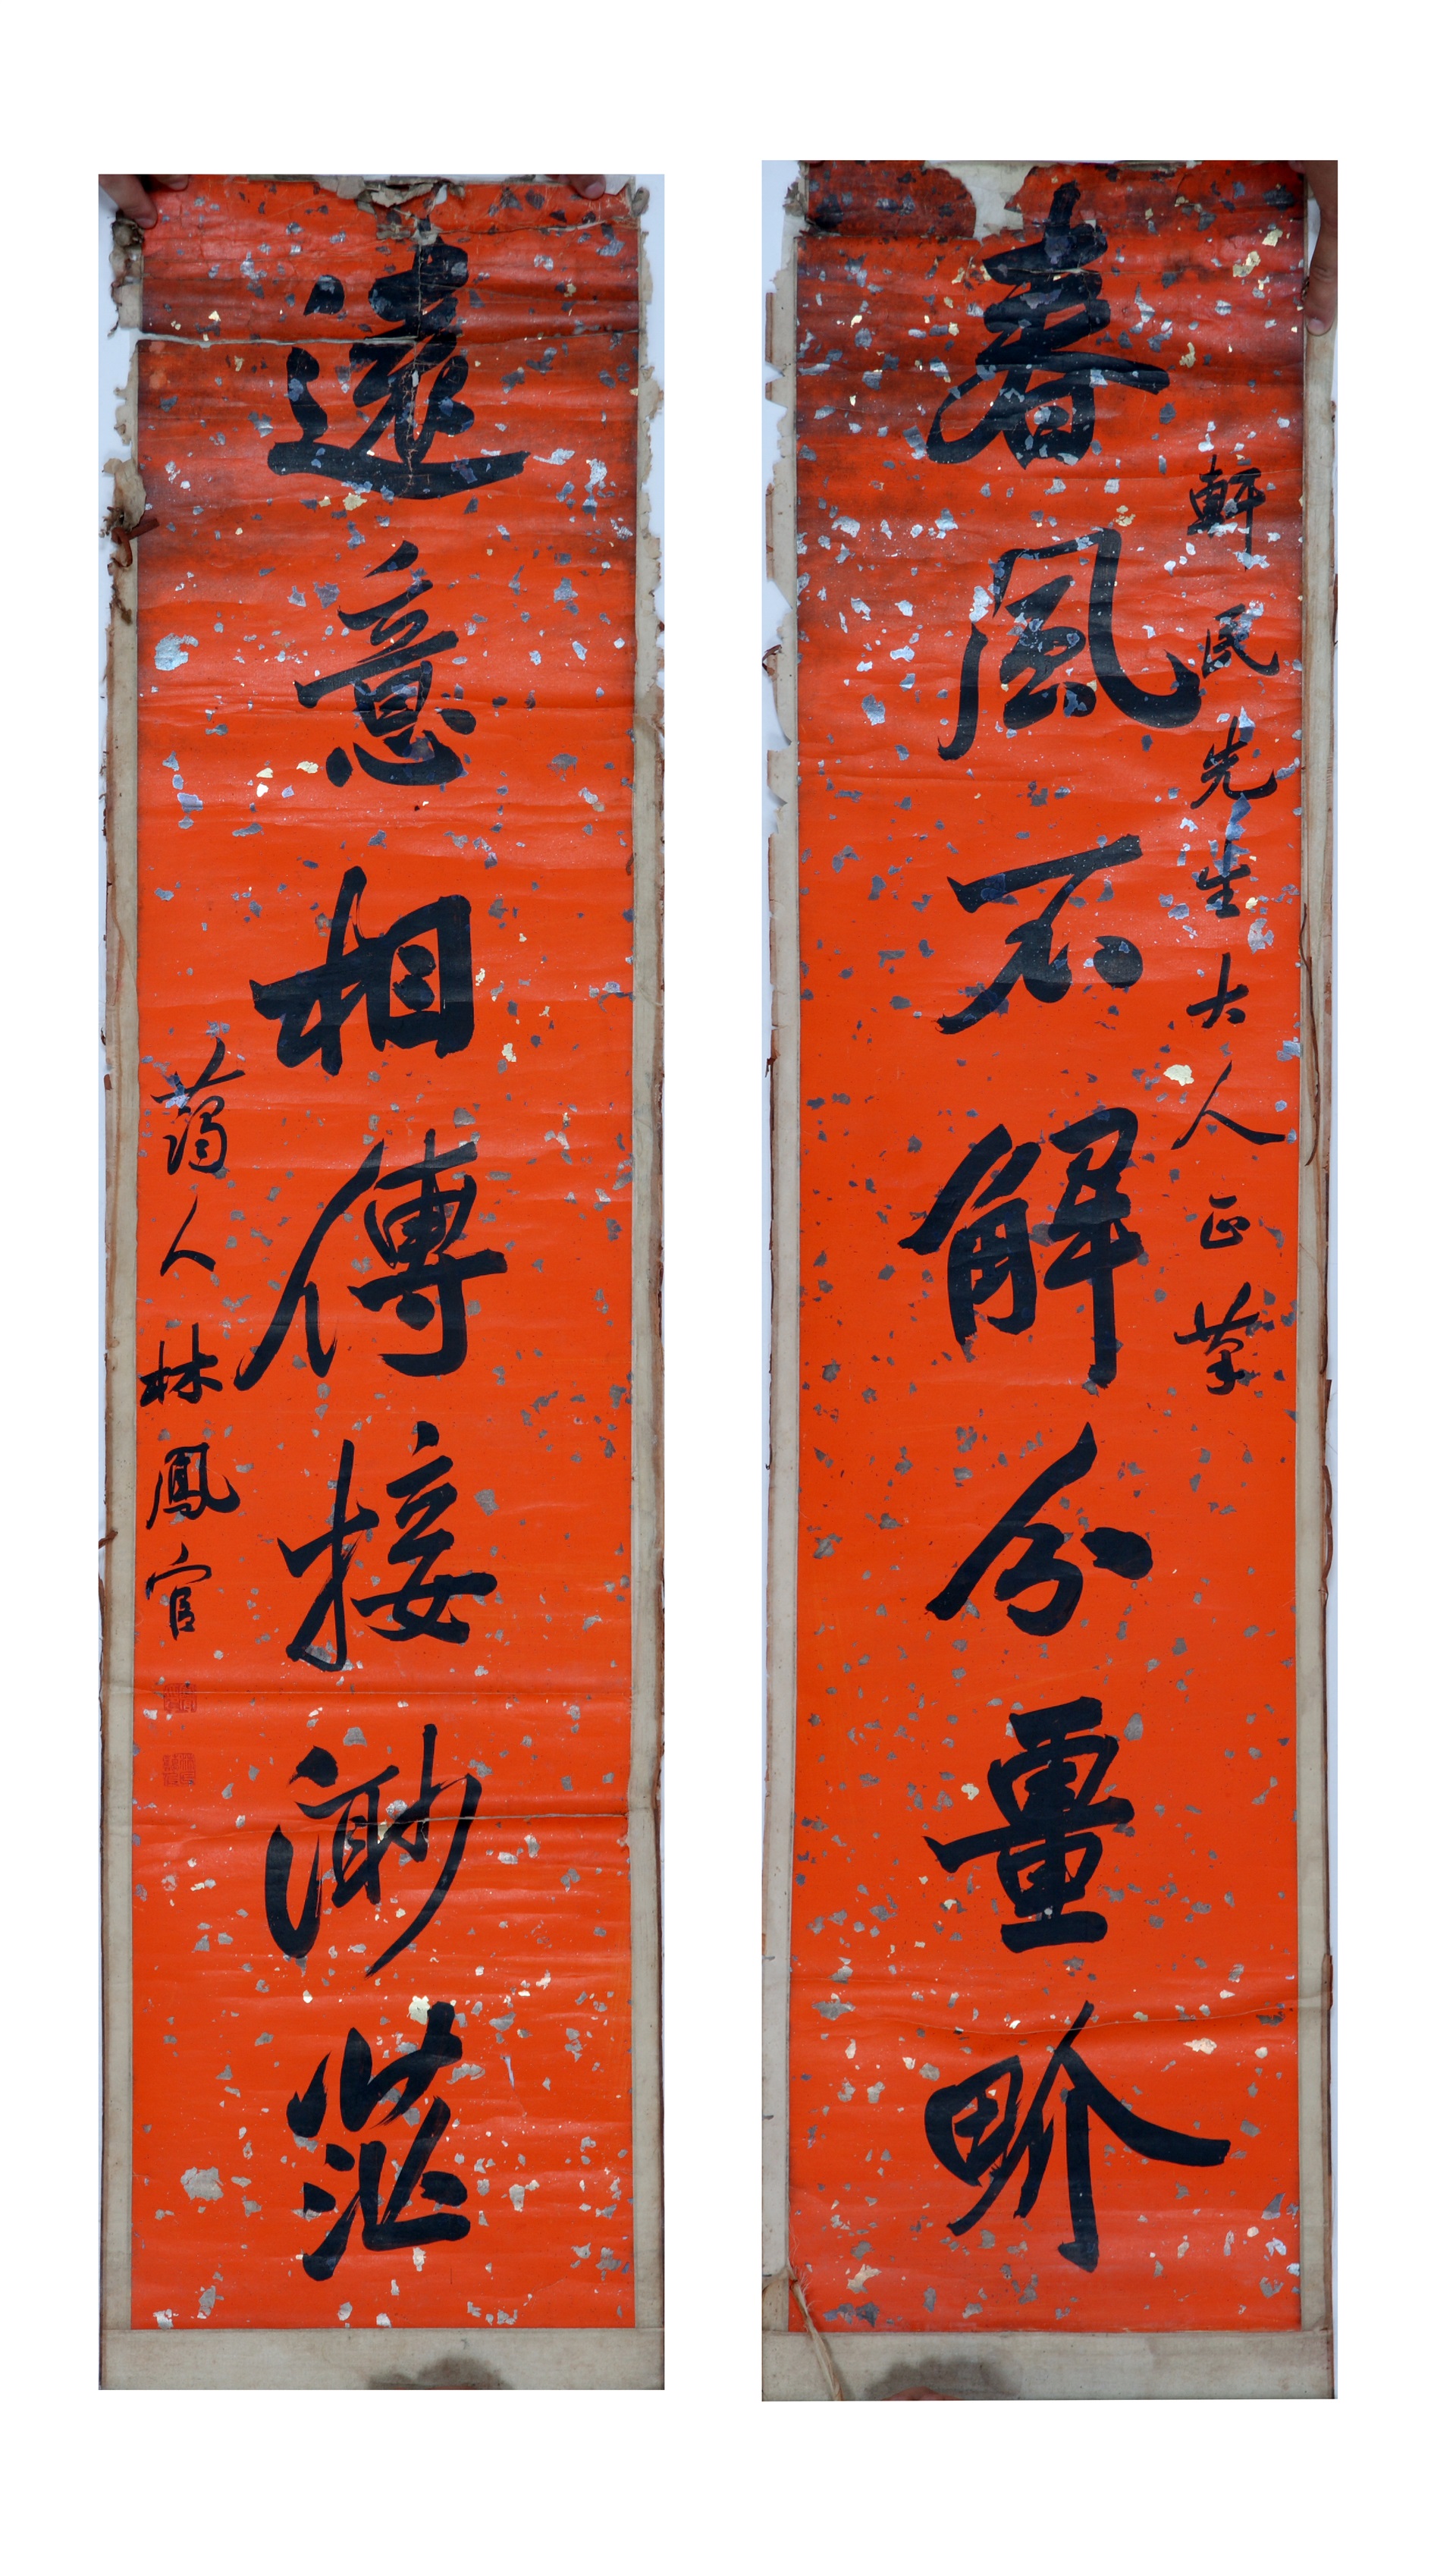 軒民先生大人正筆
春風不解分量畍
遠意相傳接渺茫
藹人林鳳官